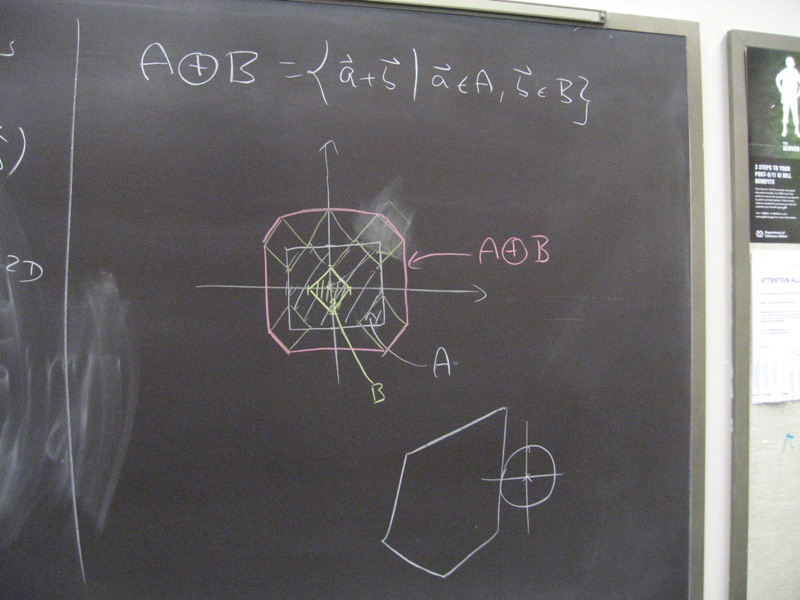 A⊕B = {a⃗+b⃗ | a⃗∈A, b⃗∈B}
2D
A⊕B
A
B
3 STEPS TO YOUR
POST-9/11 GI BILL
BENEFITS
ATTENTION ALL